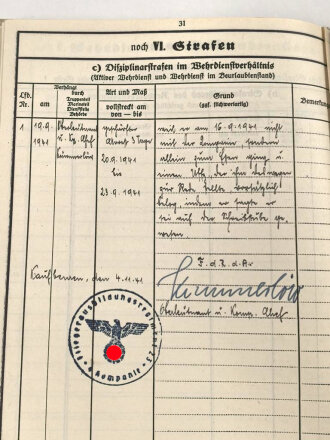 31
noch VI. Strafen
c) Disziplinarstrafen im Wehrdienstverhältnis
(Aktiver Wehrdienst und Wehrdienst im Beurlaubtenstand)
Lfd. Nr.
Verhängt
am
durch
Truppenteil
Marineteil
Dienststelle
Behörde
Art und Maß
vollstreckt am
von — bis
Grund
(ggf. stichwortartig)
1
19.9.
1941
Oberleutnant
u. Kp. Chef
gesch.
Arrest 3 Tage
20.9.1941
bis
23.9.1941
weil er am 16.9.1941 nicht
mit der Kompanie, sondern
allein zum Essen ging u.
einen Uffz., der ihn deswegen
zur Rede stellte vorsätzlich
belog, indem er sagte er
sei auf der Schreibstube ge-
wesen.
F. d. R. d. A.
Kaufbeuren, den 4.11.41
Oberleutnant u. Komp. Chef
Fliegerausbildungsregiment 23
Kompanie